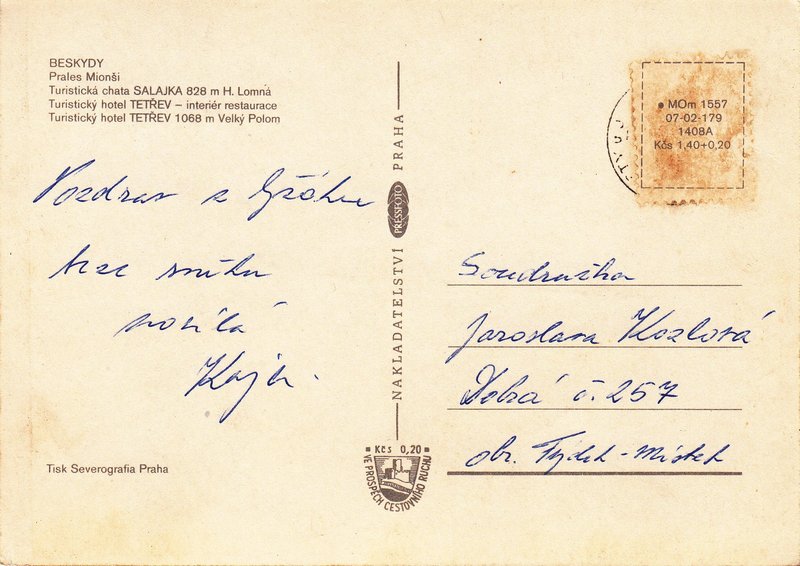 BESKYDY
Prales Mionší
Turistická chata SALAJKA 828 m H. Lomná
Turistický hotel TETŘEV – interiér restaurace
Turistický hotel TETŘEV 1068 m Velký Polom
Pozdrav z
beze sněhu
posílá
Kája.
Tisk Severografia Praha
NAKLADATELSTVÍ PRESSFOTO PRAHA
Kčs 0,20
VE PROSPĚCH CESTOVNÍHO RUCHU
MOm 1557
07-02-179
1408A
Kčs 1,40+0,20
Soudružka
Jaroslava Kozlová
Dobrá č. 257
okr. Frýdek-Místek